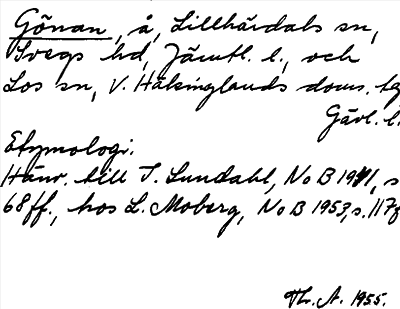 Gönan, å, Lillhärdals sn,
Svegs hd, Jämtl. l., och
Los sn, V. Hälsinglands doms. tg
Gävl. l.
Etymologi.
Hänv. till I. Lundahl, NoB 1941, s
68ff., hos L. Moberg, NoB 1953, s. 117f
Th. A. 1955.